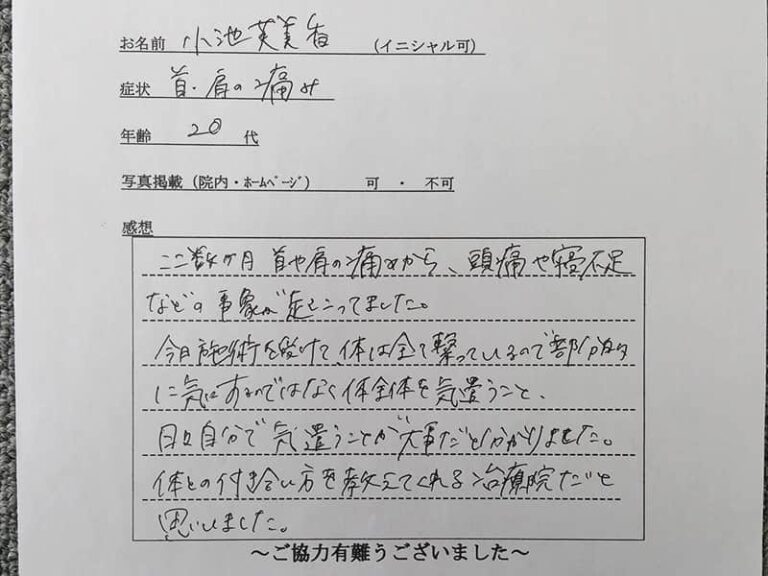 お名前 小池英美香 (イニシャル可)
症状 首・肩の痛み
年齢 20 代
写真掲載（院内・ホームページ） 可 ・ 不可
感想
ここ数ヶ月 首や肩の痛みから、頭痛や寝不足
などの事象が起こってました。
今日施術を受けて、体は全て繋っているので部分的
に気にするのではなく体全体を気遣うこと、
日々自分で気遣うことが大事だと分かりました。
体との付き合い方を教えてくれる治療院だと
思いました。
～ご協力有難うございました～